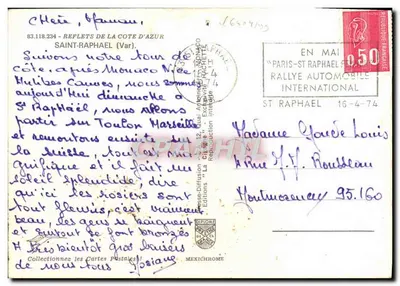 Chère Maman,
83.118.334 - REFLETS DE LA COTE D'AZUR
SAINT-RAPHAEL (Var).
Suivons notre tour de
côte, après Monaco Nice
Antibes Cannes, nous sommes
aujourd'hui dimanche à
St Raphaël, nous allons
partir sur Toulon Marseille
et remontons ensuite sur
la Suisse, tout est
magnifique et il fait un
soleil splendide, dire
qu'ici les rosiers sont
tout fleuris, c'est vraiment
beau, les gens se baignent
et surtout se font bronzés
A très bientôt gros baisers
de nous tous Josiane
Collectionnez les Cartes Postales
MEXICHROME
EN MAI
"PARIS-ST RAPHAEL
RALLYE AUTOMOBILE
INTERNATIONAL
ST RAPHAEL 16-4-74
0,50
Madame Louis
Rue J.J. Rousseau
Montmorency 95.160